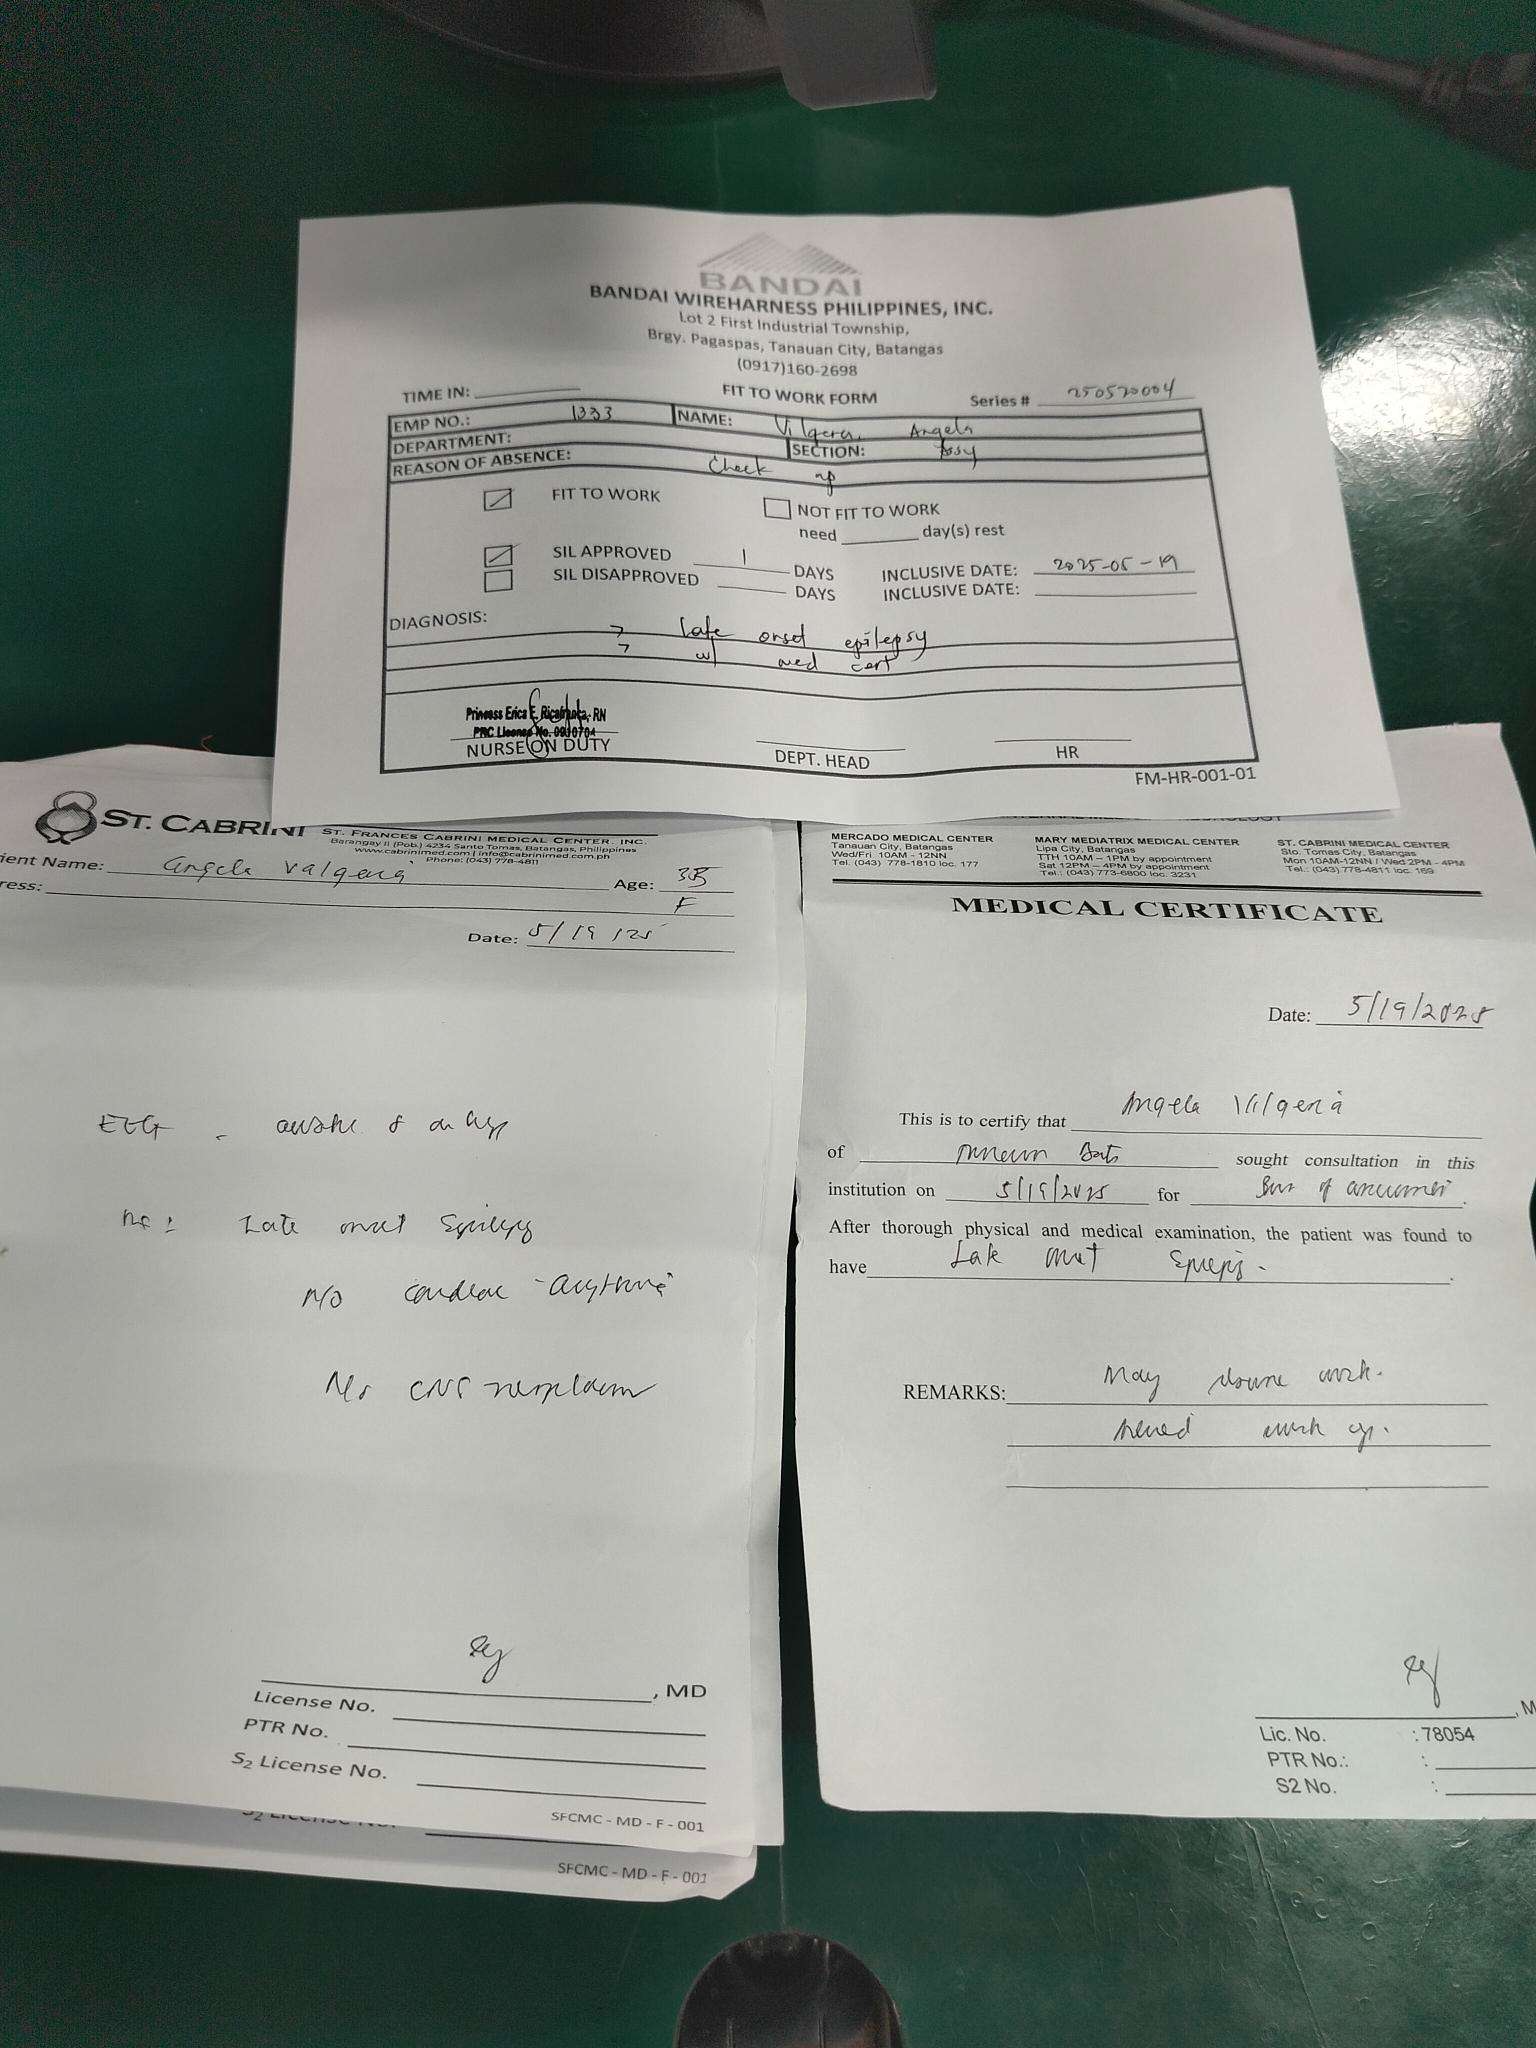 BANDAI
BANDAI WIREHARNESS PHILIPPINES, INC.
Lot 2 First Industrial Township,
Brgy. Pagaspas, Tanauan City, Batangas
(0917)160-2698
TIME IN:
FIT TO WORK FORM
Series # 250520004
EMP NO.: 1333 NAME: Vilgera, Angela
DEPARTMENT: SECTION: Assy
REASON OF ABSENCE: Check up
FIT TO WORK
NOT FIT TO WORK
need day(s) rest
SIL APPROVED 1 DAYS INCLUSIVE DATE: 2025-05-19
SIL DISAPPROVED DAYS INCLUSIVE DATE:
DIAGNOSIS:
→ late onset epilepsy
→ w/ med cert
Princess Erica E. Ricafranca, RN
PRC License No. 0910704
NURSE ON DUTY
DEPT. HEAD
HR
FM-HR-001-01
ST. CABRINI
ST. FRANCES CABRINI MEDICAL CENTER, INC.
Barangay II (Pob.) 4234 Santo Tomas, Batangas, Philippines
www.cabrinimed.com | info@cabrinimed.com.ph
Phone: (043) 778-4811
ient Name: Angela Valgera
Age: 33
ress: F
Date: 5/19/25
EEG - awake &
Late onset Epilepsy
r/o cardiac
CNS neoplasm
, MD
License No.
PTR No.
S2 License No.
SFCMC - MD - F - 001
S2 License No.
SFCMC - MD - F - 001
MERCADO MEDICAL CENTER
Tanauan City, Batangas
Wed/Fri 10AM - 12NN
Tel. (043) 778-1810 loc. 177
MARY MEDIATRIX MEDICAL CENTER
Lipa City, Batangas
TTH 10AM – 1PM by appointment
Sat 12PM – 4PM by appointment
Tel.: (043) 773-6800 loc. 3231
ST. CABRINI MEDICAL CENTER
Sto. Tomas City, Batangas
Mon 10AM-12NN / Wed 2PM - 4PM
Tel.: (043) 778-4811 loc. 169
MEDICAL CERTIFICATE
Date: 5/19/2025
This is to certify that Angela Vilgera
of sought consultation in this
institution on 5/19/2025 for
After thorough physical and medical examination, the patient was found to
have Late onset Epilepsy.
REMARKS: May resume work.
Need work up.
Lic. No. : 78054
PTR No.: :
S2 No. :